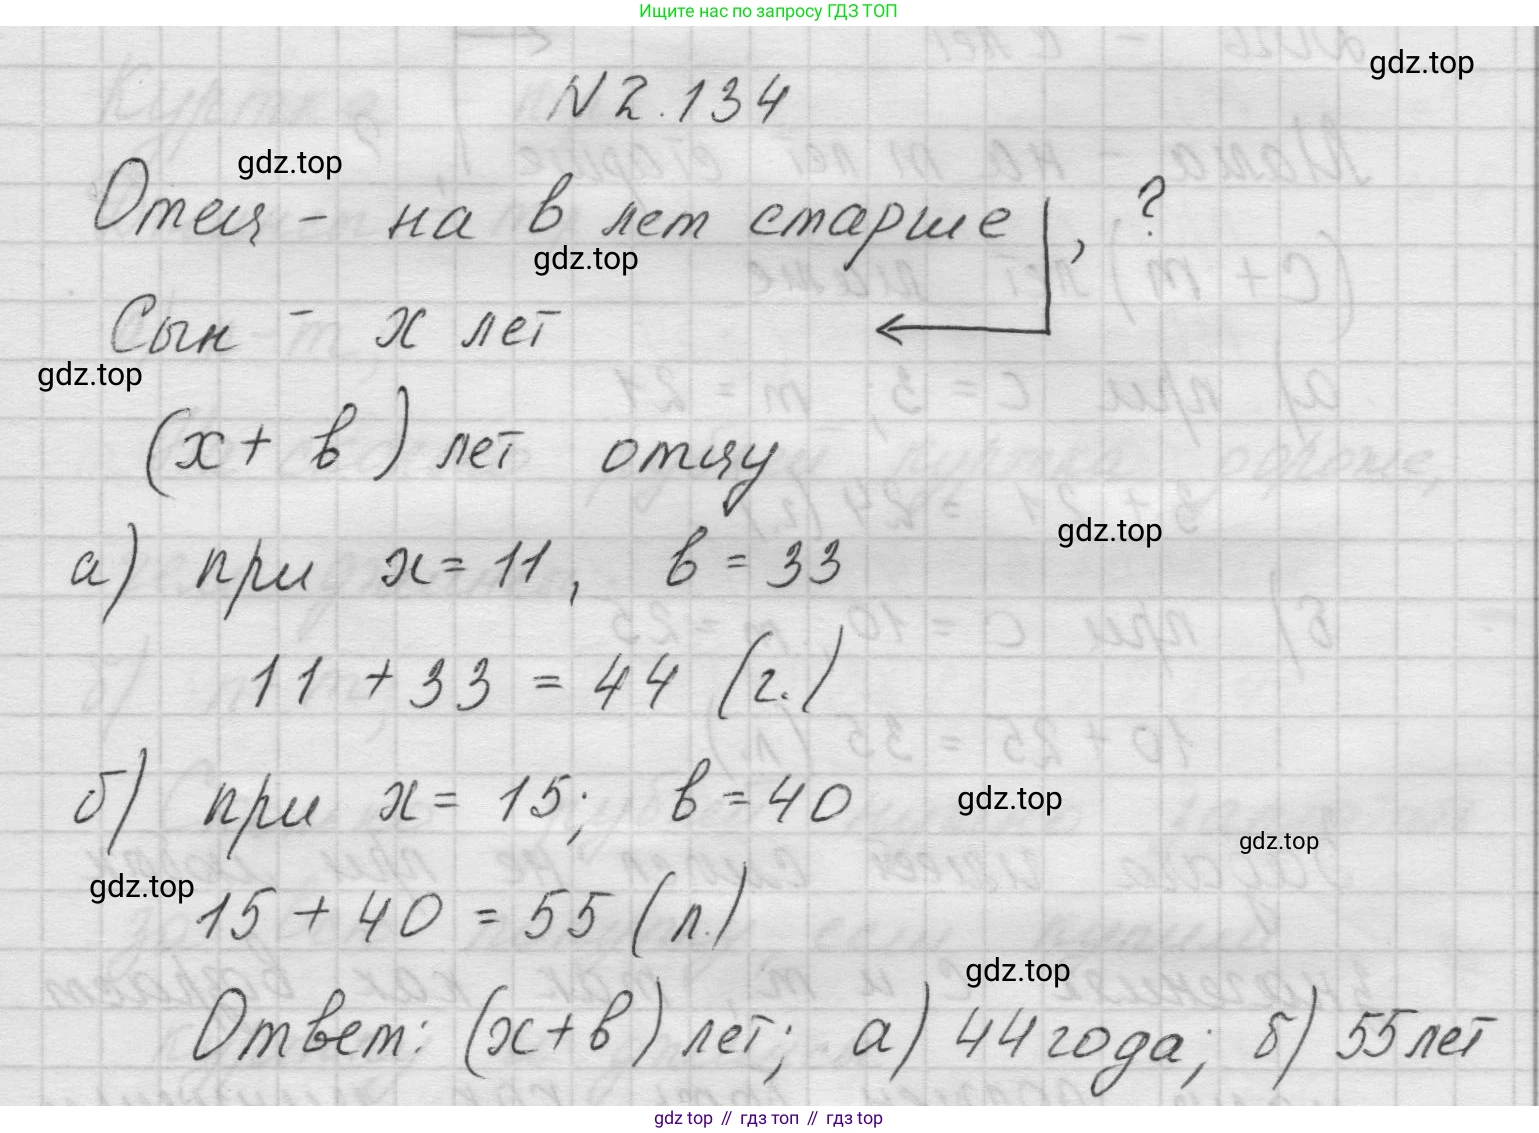 Ищите нас по запросу ГДЗ ТОП
gdz.top
N 2.134
gdz.top
Отец - на в лет старше, ?
gdz.top
Сын - х лет
gdz.top
(х + в) лет отцу
gdz.top
а) при х = 11, в = 33
11 + 33 = 44 (г.)
б) при х = 15; в = 40
gdz.top
gdz.top
gdz.top
15 + 40 = 55 (л.)
gdz.top
Ответ: (х + в) лет; а) 44 года; б) 55 лет
gdz top // гдз топ // гдз top